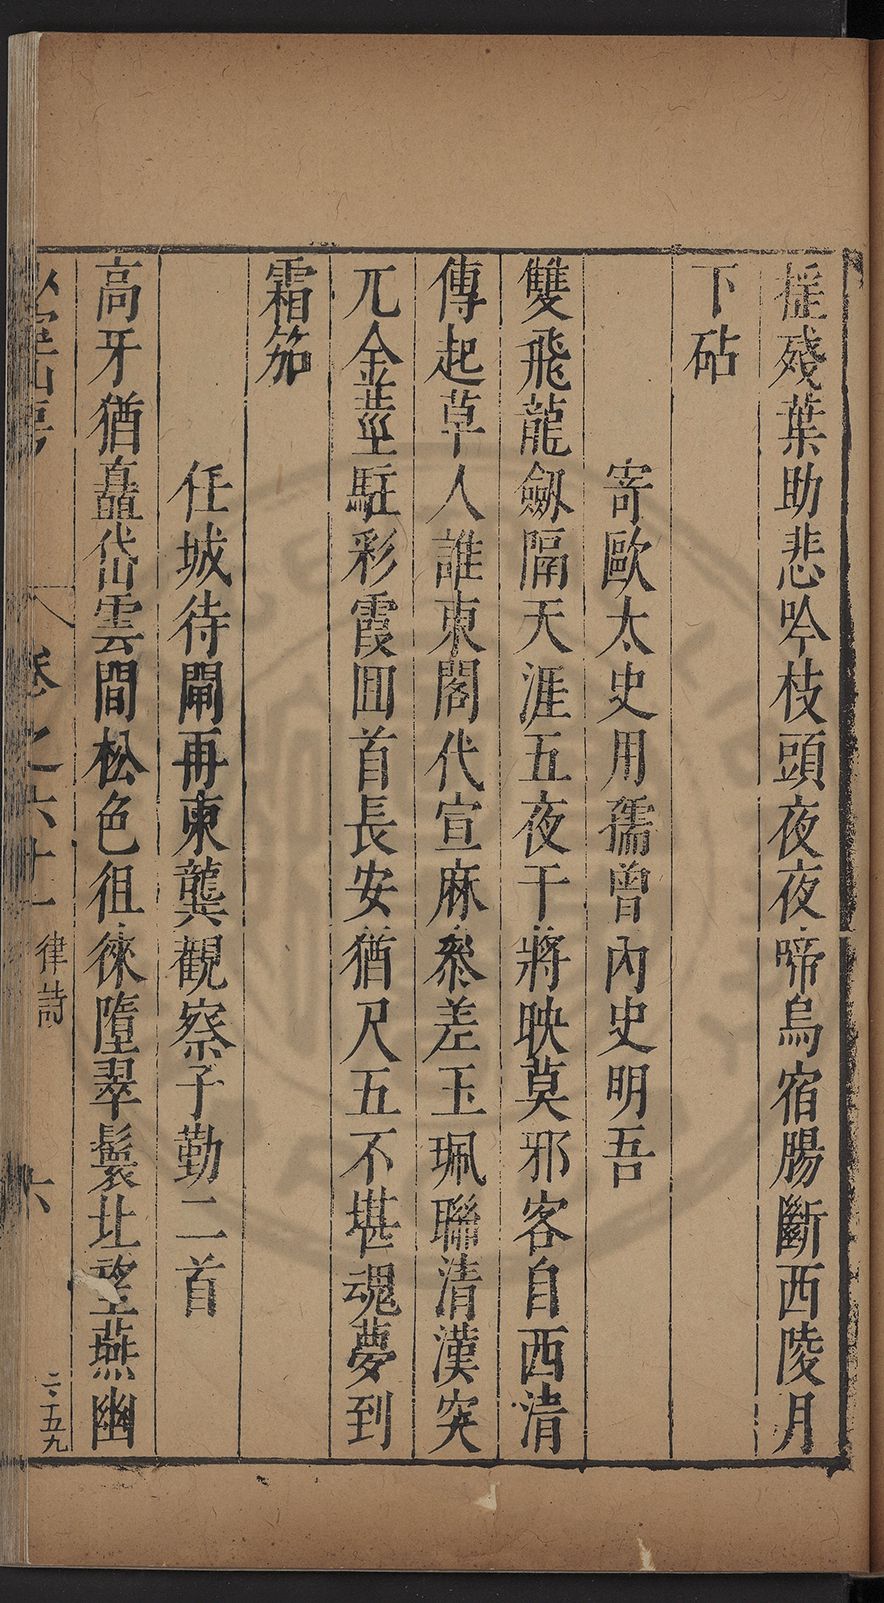 摇殘葉助悲吟枝頭夜夜啼烏宿腸斷西陵月
下砧
寄歐太史用孺曾內史明吾
雙飛龍劔隔天涯五夜干將映莫邪客自西清
傳起草人誰東閣代宣麻叅差玉珮聯清漢突
兀金莖駐彩霞囬首長安猶尺五不堪魂夢到
霜笳
任城待閘再柬龔觀察子勤二首
高牙猶矗岱雲間松色徂徠墮翠鬟北望燕幽
卷之六十一
律詩
六
二·五九